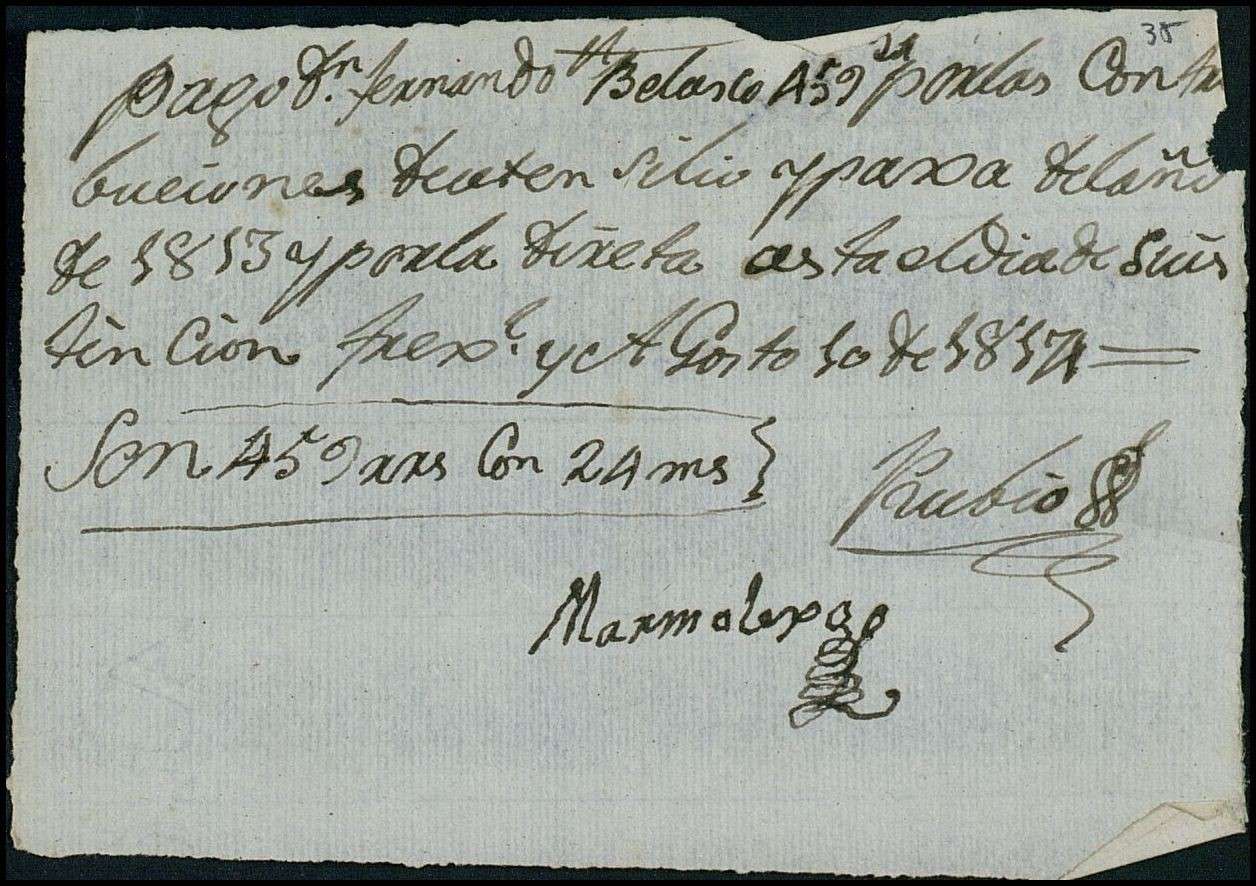 35
Pago Dn. fernando Belasco 459 24 por las Contri
buciones de uten silio y paxa del año
de 1813 y por la direta asta el dia de Suis
tin Cion frexl. y Agosto 10 de 1814 =
Son 459 rrs Con 24 ms }
Rubio
Marmolexo